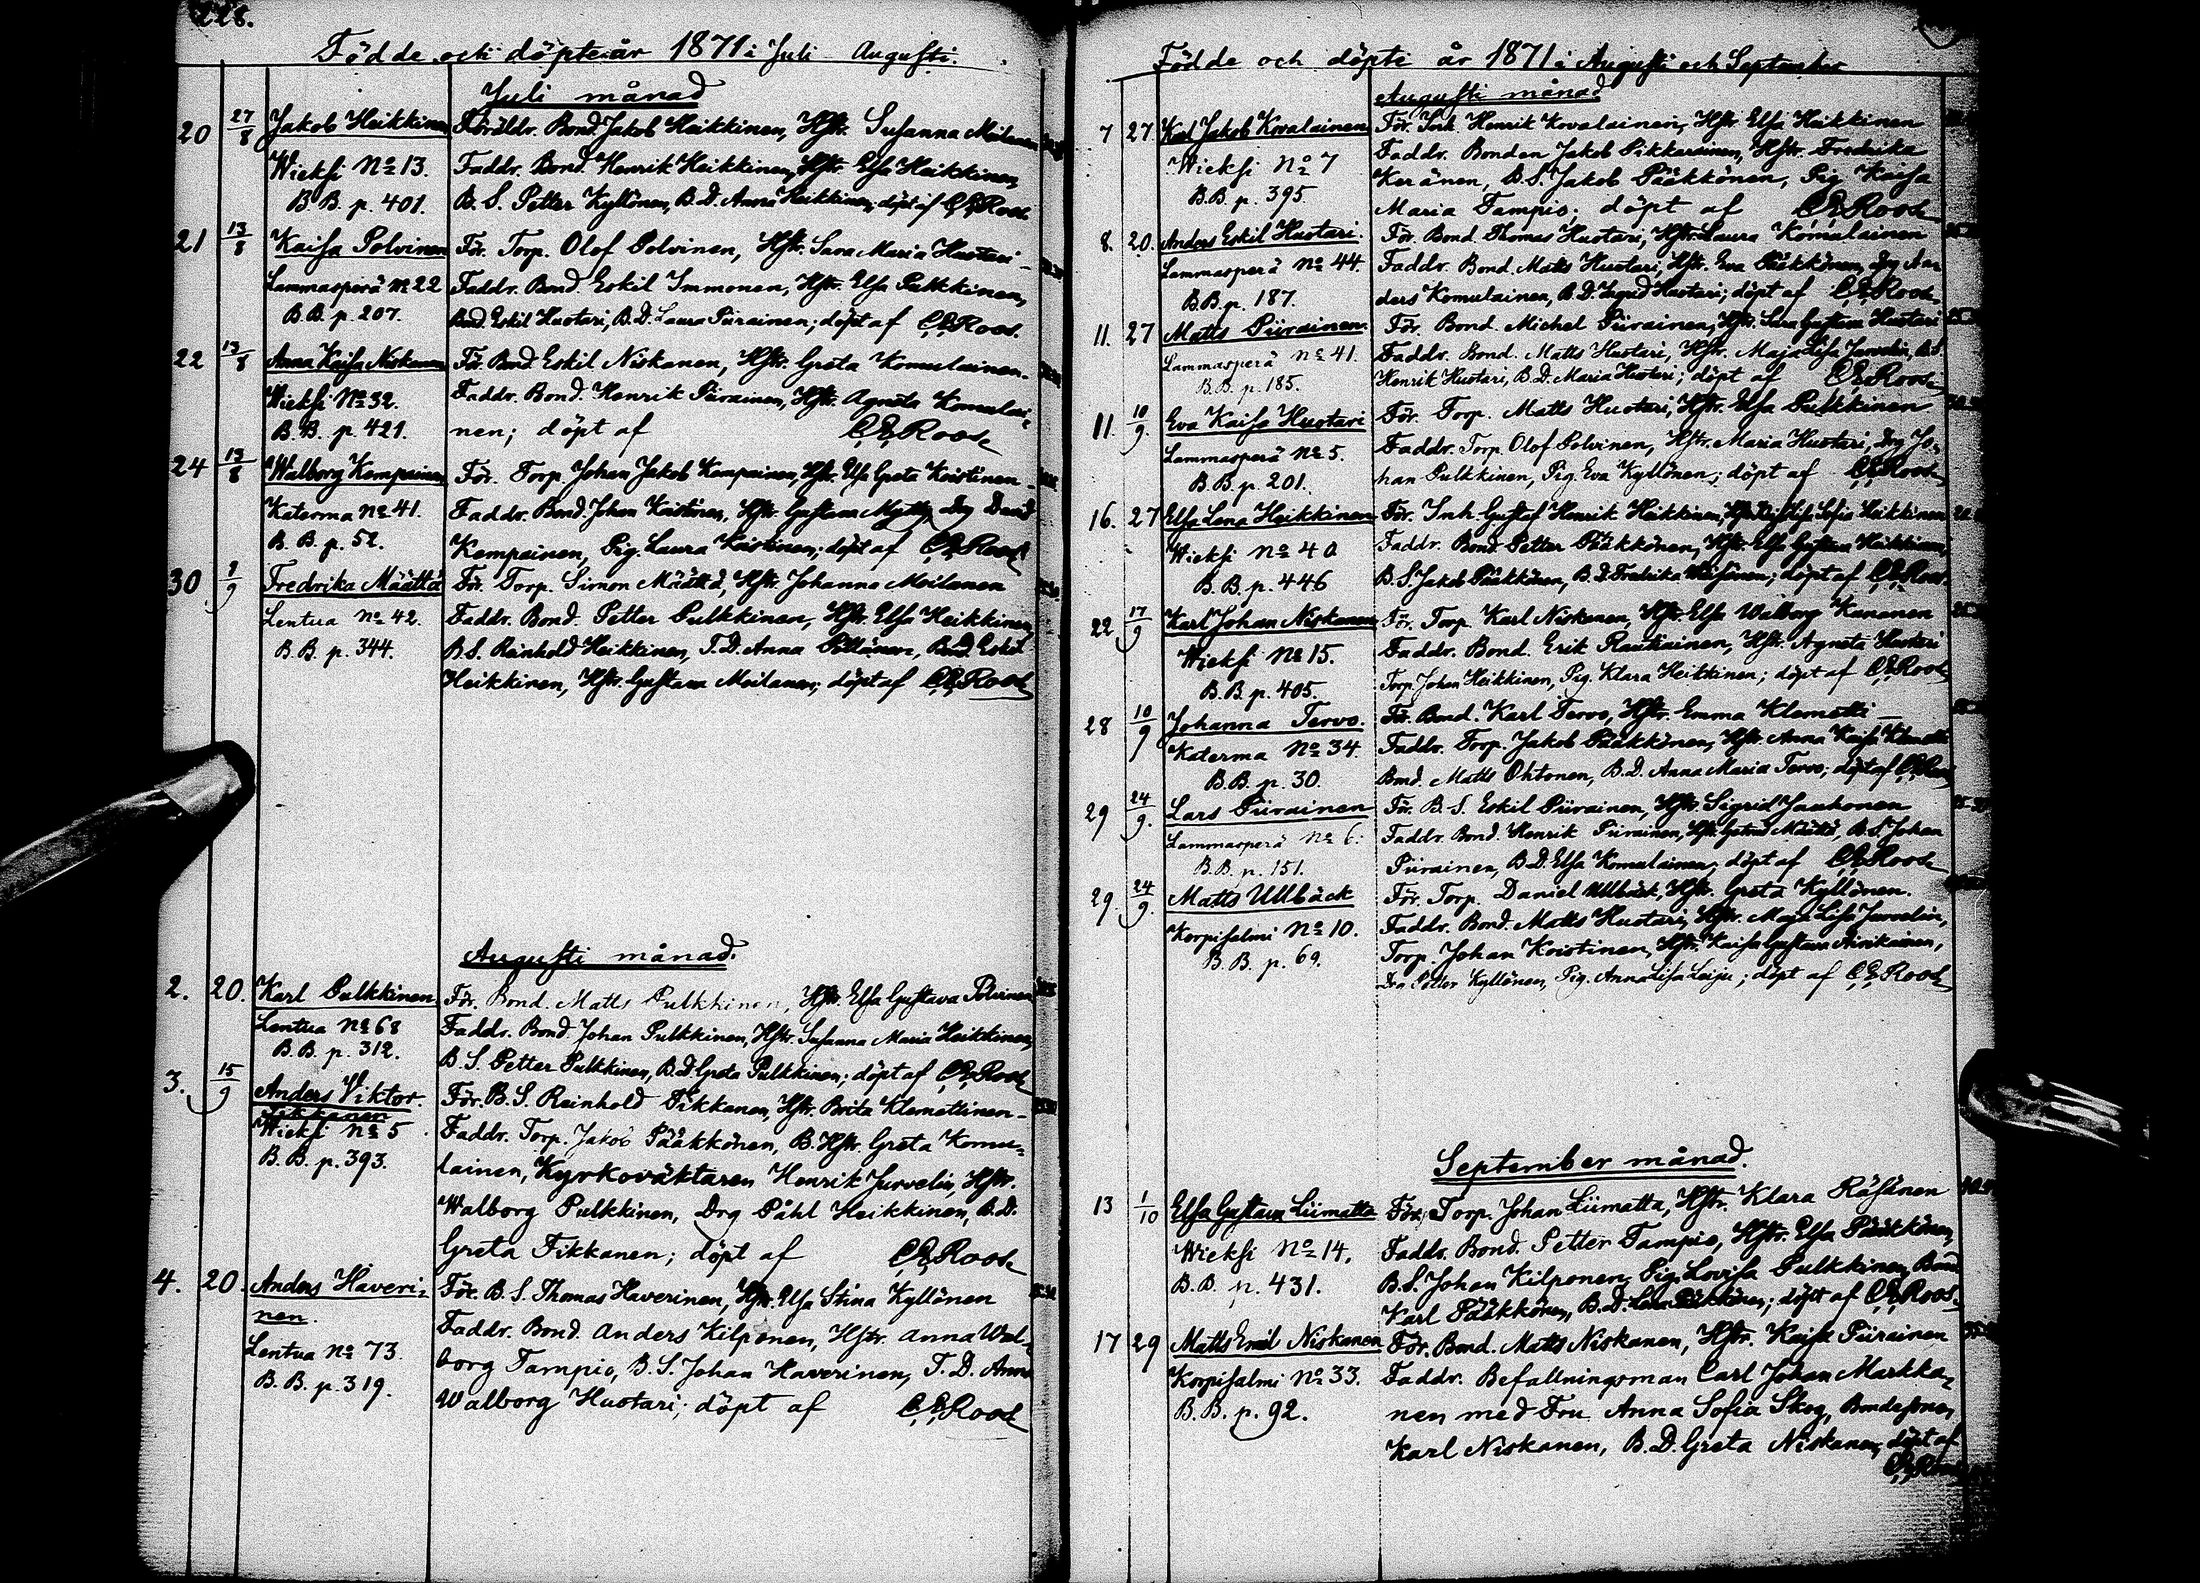 228.
Födde och döpte år 1871 i Juli Augusti.
Juli månad
20 27/8 Jakob Heikkinen Föräldr. Bond. Jakob Heikkinen, Hstr. Susanna Moilanen
Wieksi No 13. Faddr. Bond. Henrik Heikkinen, Hstr. Elsa Heikkinen,
B. B. p. 401. B. S. Petter Kyllönen, B. D. Anna Heikkinen; döpt af C. E. Roos
21 13/8 Kaisa Polvinen För. Torp. Olof Polvinen, Hstr. Sara Maria Huotari
Lammasperä No 22 Faddr. Bond Eskil Immonen, Hstr. Elsa Pulkkinen,
B. B. p. 207. Bond. Eskil Huotari, B. D. Laura Piirainen; döpt af C. E. Roos.
22 13/8 Anna Kaisa Niskanen För. Bond. Eskil Niskanen, Hstr. Greta Komulainen
Wieksi No 32. Faddr. Bond. Henrik Piirainen, Hstr. Agneta Komulai-
B. B. p. 421. nen; döpt af C. E. Roos
24 13/8 Walborg Kempainen För. Torp. Johan Jakob Kempainen, Hstr. Ulla Greta Koistinen
Katerma No 41. Faddr. Bond. Johan Koistinen, Hstr. Gustava Drg David
B. B. p. 52. Kempainen, Pig. Laura Koistinen; döpt af C. E. Roos
30 /9 Fredrika Määttä För. Torp. Simon Määttä, Hstr. Johanna Moilanen
Lentua No 42. Faddr. Bond. Petter Pulkkinen, Hstr. Elsa Heikkinen,
B. B. p. 344. B. S. Reinhold Heikkinen, T. D. Anna Bond. Eskil
Heikkinen, Hstr. Gustava Moilanen; döpt af C. E. Roos
Augusti månad.
2. 20. Karl Pulkkinen För. Bond. Matts Pulkkinen, Hstr. Elsa Gustava Polvinen
Lentua No 68 Faddr. Bond. Johan Pulkkinen, Hstr. Susanna Maria Heikkinen,
B. B. p. 312. B. S. Petter Pulkkinen, B. D. Greta Pulkkinen; döpt af C. E. Roos
3. 15/9 Anders Viktor För. B. S. Reinhold Tikkanen, Hstr. Brita Klemettinen
Tikkanen
Wieksi No 5 Faddr. Torp. Jakob Pääkkönen, B. Hstr. Greta Komu-
B. B. p. 393. lainen, Kyrkoväktaren Henrik Jurvelin, Hstr.
Walborg Pulkkinen, Drg Påhl Heikkinen, B. D.
Greta Tikkanen; döpt af C. E. Roos
4. 20. Anders Haveri- För. B. S. Thomas Haverinen, Hstr. Elsa Stina Kyllönen
nen. Faddr. Bond. Anders Kilponen, Hstr. Anna Wal-
Lentua No 73. borg Tampio, B. S. Johan Haverinen, T. D. Anna
B. B. p. 319. Walborg Huotari; döpt af C. E. Roos
Födde och döpte år 1871 i Augusti och September
Augusti månad
7 27 Karl Jakob Kovalainen För. Inh. Henrik Kovalainen, Hstr. Elsa Heikkinen
Wieksi No 7 Faddr. Bonden Jakob Pikkarainen, Hstr. Fredrika
B. B. p. 395. Keränen, B. S. Jakob Pääkkönen, Pig. Kaisa
Maria Tampio; döpt af C. E. Roos
8. 20. Anders Eskil Huotari. För. Bond. Thomas Huotari, Hstr. Laura Komulainen
Lammasperä No 44. Faddr. Bond. Matts Huotari, Hstr. Eva Pääkkönen, Drg An-
B. B. p. 187. ders Komulainen, B. D. Ingrid Huotari; döpt af C. E. Roos
11. 27 Matts Piirainen. För. Bond. Michel Piirainen, Hstr. Sara Gustava Huotari
Lammasperä No 41. Faddr. Bond. Matts Huotari, Hstr. Maja Lisa Jurvelin, B. S.
B. B. p. 185. Henrik Huotari, B. D. Maria Huotari; döpt af C. E. Roos
11. 10/9. Eva Kaisa Huotari För. Torp. Matts Huotari, Hstr. Elsa Pulkkinen
Lammasperä No 5. Faddr. Torp Olof Polvinen, Hstr. Maria Huotari, Drg Jo-
B. B. p. 201. han Pulkkinen, Pig. Eva Kyllönen; döpt af C. E. Roos
16. 27 Elsa Lena Heikkinen För. Inh. Gustaf Henrik Heikkinen, Hstr. Sofia Heikkinen
Wieksi No 40 Faddr. Bond. Petter Pääkkönen, Hstr. Elsa Gustava Heikkinen,
B. B. p. 446 B. S. Jakob Pääkkönen, B. D. Fredrika Väisänen; döpt af C. E. Roos
22 17/9 Karl Johan Niskanen För. Torp. Karl Niskanen, Hstr. Elsa Walborg Kananen
Wieksi No 15. Faddr. Bond. Erik Rautiainen, Hstr. Agneta Huotari
B. B. p. 405. Torp. Johan Heikkinen, Pig. Klara Heikkinen; döpt af C. E. Roos
28 10/9 Johanna Tervo. För. Bond. Karl Tervo, Hstr. Emma Klemetti
Katerma No 34. Faddr. Torp. Jakob Pääkkönen, Hstr. Anna Kaisa Klemetti
B. B. p. 30. Bond. Matts Ohtonen, B. D. Anna Maria Tervo; döpt af C. E. Roos
29 24/9. Lars Piirainen För. B. S. Eskil Piirainen, Hstr. Sigrid Jauhonen
Lammasperä No 6. Faddr. Bond. Henrik Piirainen, Hstr. Gertrud Määttä, B. S. Johan
B. B. p. 151. Piirainen, B. D. Elsa Komulainen; döpt af C. E. Roos
29. 24/9. Matts Ullbäck För. Torp. Daniel Ullbäck, Hstr. Greta Kyllönen.
Korpisalmi No 10. Faddr. Bond. Matts Huotari, Hstr. Maja Lisa Jurvelin,
B. B. p. 69. Torp. Johan Koistinen, Hstr. Kaisa Gustava
Petter Kyllönen, Pig. Anna Lisa Leiju; döpt af C. E. Roos
September månad.
13 1/10 Elsa Gustava Liimatta För. Torp. Johan Liimatta, Hstr. Klara Räisänen
Wieksi No 14. Faddr. Bond. Petter Tampio, Hstr. Elsa Pääkkönen,
B. B. p. 431. B. S. Johan Kilponen, Pig. Lovisa Pulkkinen, Bond
Karl Pääkkönen, B. D. Lena Pääkkönen; döpt af C. E. Roos.
17 29 Matts Emil Niskanen För. Bond. Matts Niskanen, Hstr. Kaisa Piirainen
Korpisalmi No 33. Faddr. Befallningsman Carl Johan Markka-
B. B. p. 92. nen med Fru Anna Sofia Skog, Bondesonen
Karl Niskanen, B. D. Greta Niskanen; döpt af
C. E. Roos